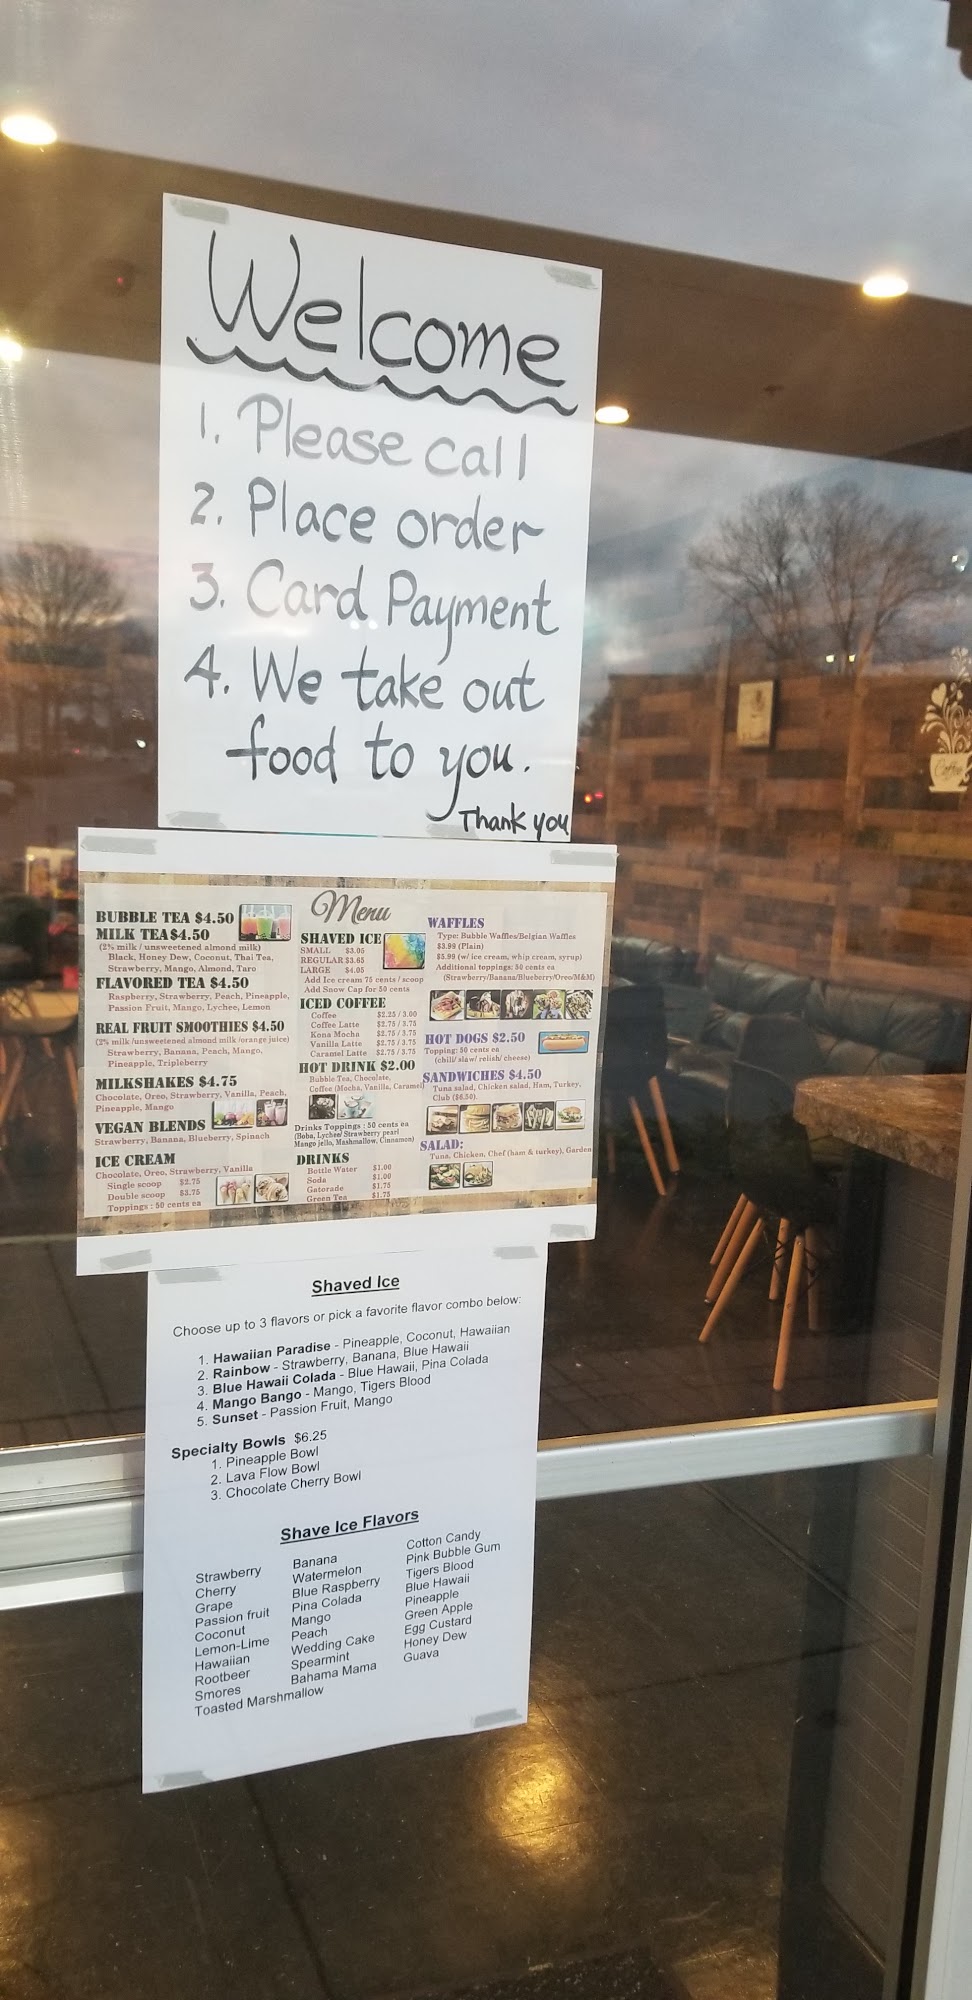 Welcome
1. Please call
2. Place order
3. Card Payment
4. We take out
food to you.
Thank you
Menu
BUBBLE TEA $4.50
MILK TEA $4.50
(2% milk / unsweetened almond milk)
Black, Honey Dew, Coconut, Thai Tea,
Strawberry, Mango, Almond, Taro
FLAVORED TEA $4.50
Raspberry, Strawberry, Peach, Pineapple,
Passion Fruit, Mango, Lychee, Lemon
REAL FRUIT SMOOTHIES $4.50
(2% milk /unsweetened almond milk /orange juice)
Strawberry, Banana, Peach, Mango,
Pineapple, Tripleberry
MILKSHAKES $4.75
Chocolate, Oreo, Strawberry, Vanilla, Peach,
Pineapple, Mango
VEGAN BLENDS
Strawberry, Banana, Blueberry, Spinach
ICE CREAM
Chocolate, Oreo, Strawberry, Vanilla
Single scoop $2.75
Double scoop $3.75
Toppings : 50 cents ea
SHAVED ICE
SMALL $3.05
REGULAR $3.65
LARGE $4.05
Add Ice cream 75 cents / scoop
Add Snow Cap for 50 cents
ICED COFFEE
Coffee $2.25 / 3.00
Coffee Latte $2.75 / 3.75
Kona Mocha $2.75 / 3.75
Vanilla Latte $2.75 / 3.75
Caramel Latte $2.75 / 3.75
HOT DRINK $2.00
Bubble Tea, Chocolate,
Coffee (Mocha, Vanilla, Caramel)
Drinks Toppings : 50 cents ea
(Boba, Lychee/ Strawberry pearl
Mango jello, Mashmallow, Cinnamon)
DRINKS
Bottle Water $1.00
Soda $1.00
Gatorade $1.75
Green Tea $1.75
WAFFLES
Type: Bubble Waffles/Belgian Waffles
$3.99 (Plain)
$5.99 (w/ ice cream, whip cream, syrup)
Additional toppings: 50 cents ea
(Strawberry/Banana/Blueberry/Oreo/M&M)
HOT DOGS $2.50
Topping: 50 cents ea
(chili/ slaw/ relish/ cheese)
SANDWICHES $4.50
Tuna salad, Chicken salad, Ham, Turkey,
Club ($6.50)
SALAD:
Tuna, Chicken, Chef (ham & turkey), Garden
Shaved Ice
Choose up to 3 flavors or pick a favorite flavor combo below:
1. Hawaiian Paradise - Pineapple, Coconut, Hawaiian
2. Rainbow - Strawberry, Banana, Blue Hawaii
3. Blue Hawaii Colada - Blue Hawaii, Pina Colada
4. Mango Bango - Mango, Tigers Blood
5. Sunset - Passion Fruit, Mango
Specialty Bowls $6.25
1. Pineapple Bowl
2. Lava Flow Bowl
3. Chocolate Cherry Bowl
Shave Ice Flavors
Strawberry
Cherry
Grape
Passion fruit
Coconut
Lemon-Lime
Hawaiian
Rootbeer
Smores
Toasted Marshmallow
Banana
Watermelon
Blue Raspberry
Pina Colada
Mango
Peach
Wedding Cake
Spearmint
Bahama Mama
Cotton Candy
Pink Bubble Gum
Tigers Blood
Blue Hawaii
Pineapple
Green Apple
Egg Custard
Honey Dew
Guava
Coffee